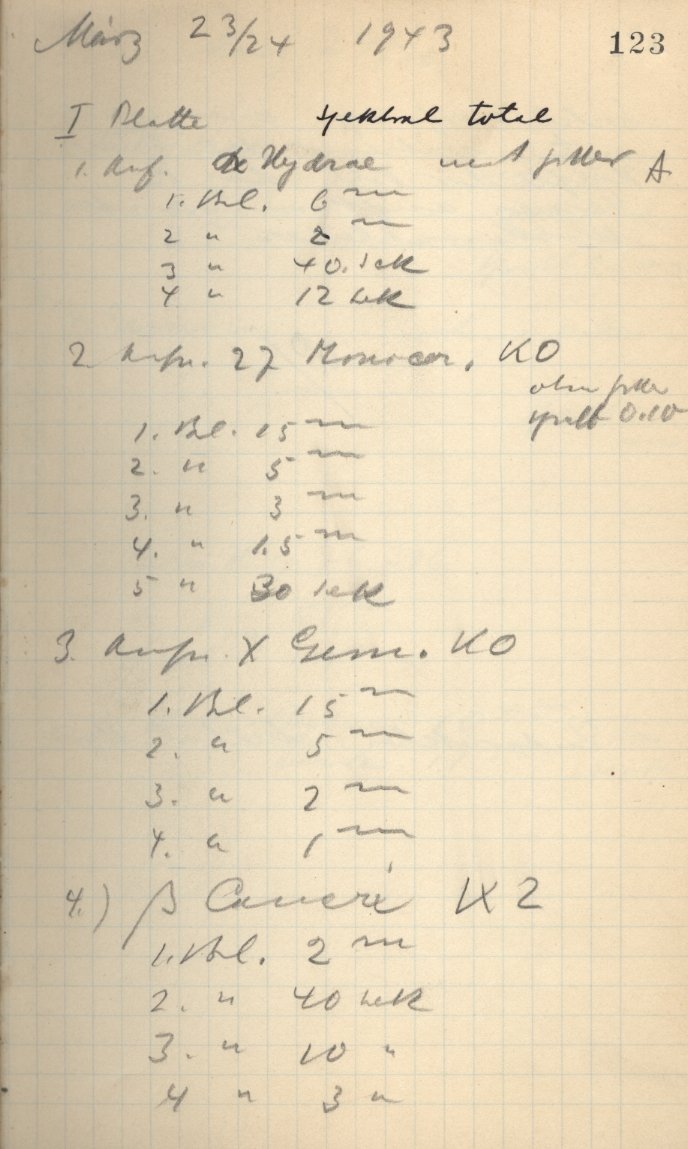 März 23/24 1943 123
I Platte spektral total
1. Auf. α Hydrae mit filter A
1. Bel. 6 m
2 " 2 m
3 " 40. sek
4 " 12 sek
2 Aufn. 27 Monocer. KO
ohne filter
spalt 0.10
1. Bel. 15 m
2. " 5 m
3. " 3 m
4. " 1.5 m
5 " 30 sek
3. Aufn. X Gem. KO
1. Bel. 15 m
2. " 5 m
3. " 2 m
4. " 1 m
4.) β Cancri K2
1. Bel. 2 m
2. " 40 sek
3. " 10 "
4 " 3 "